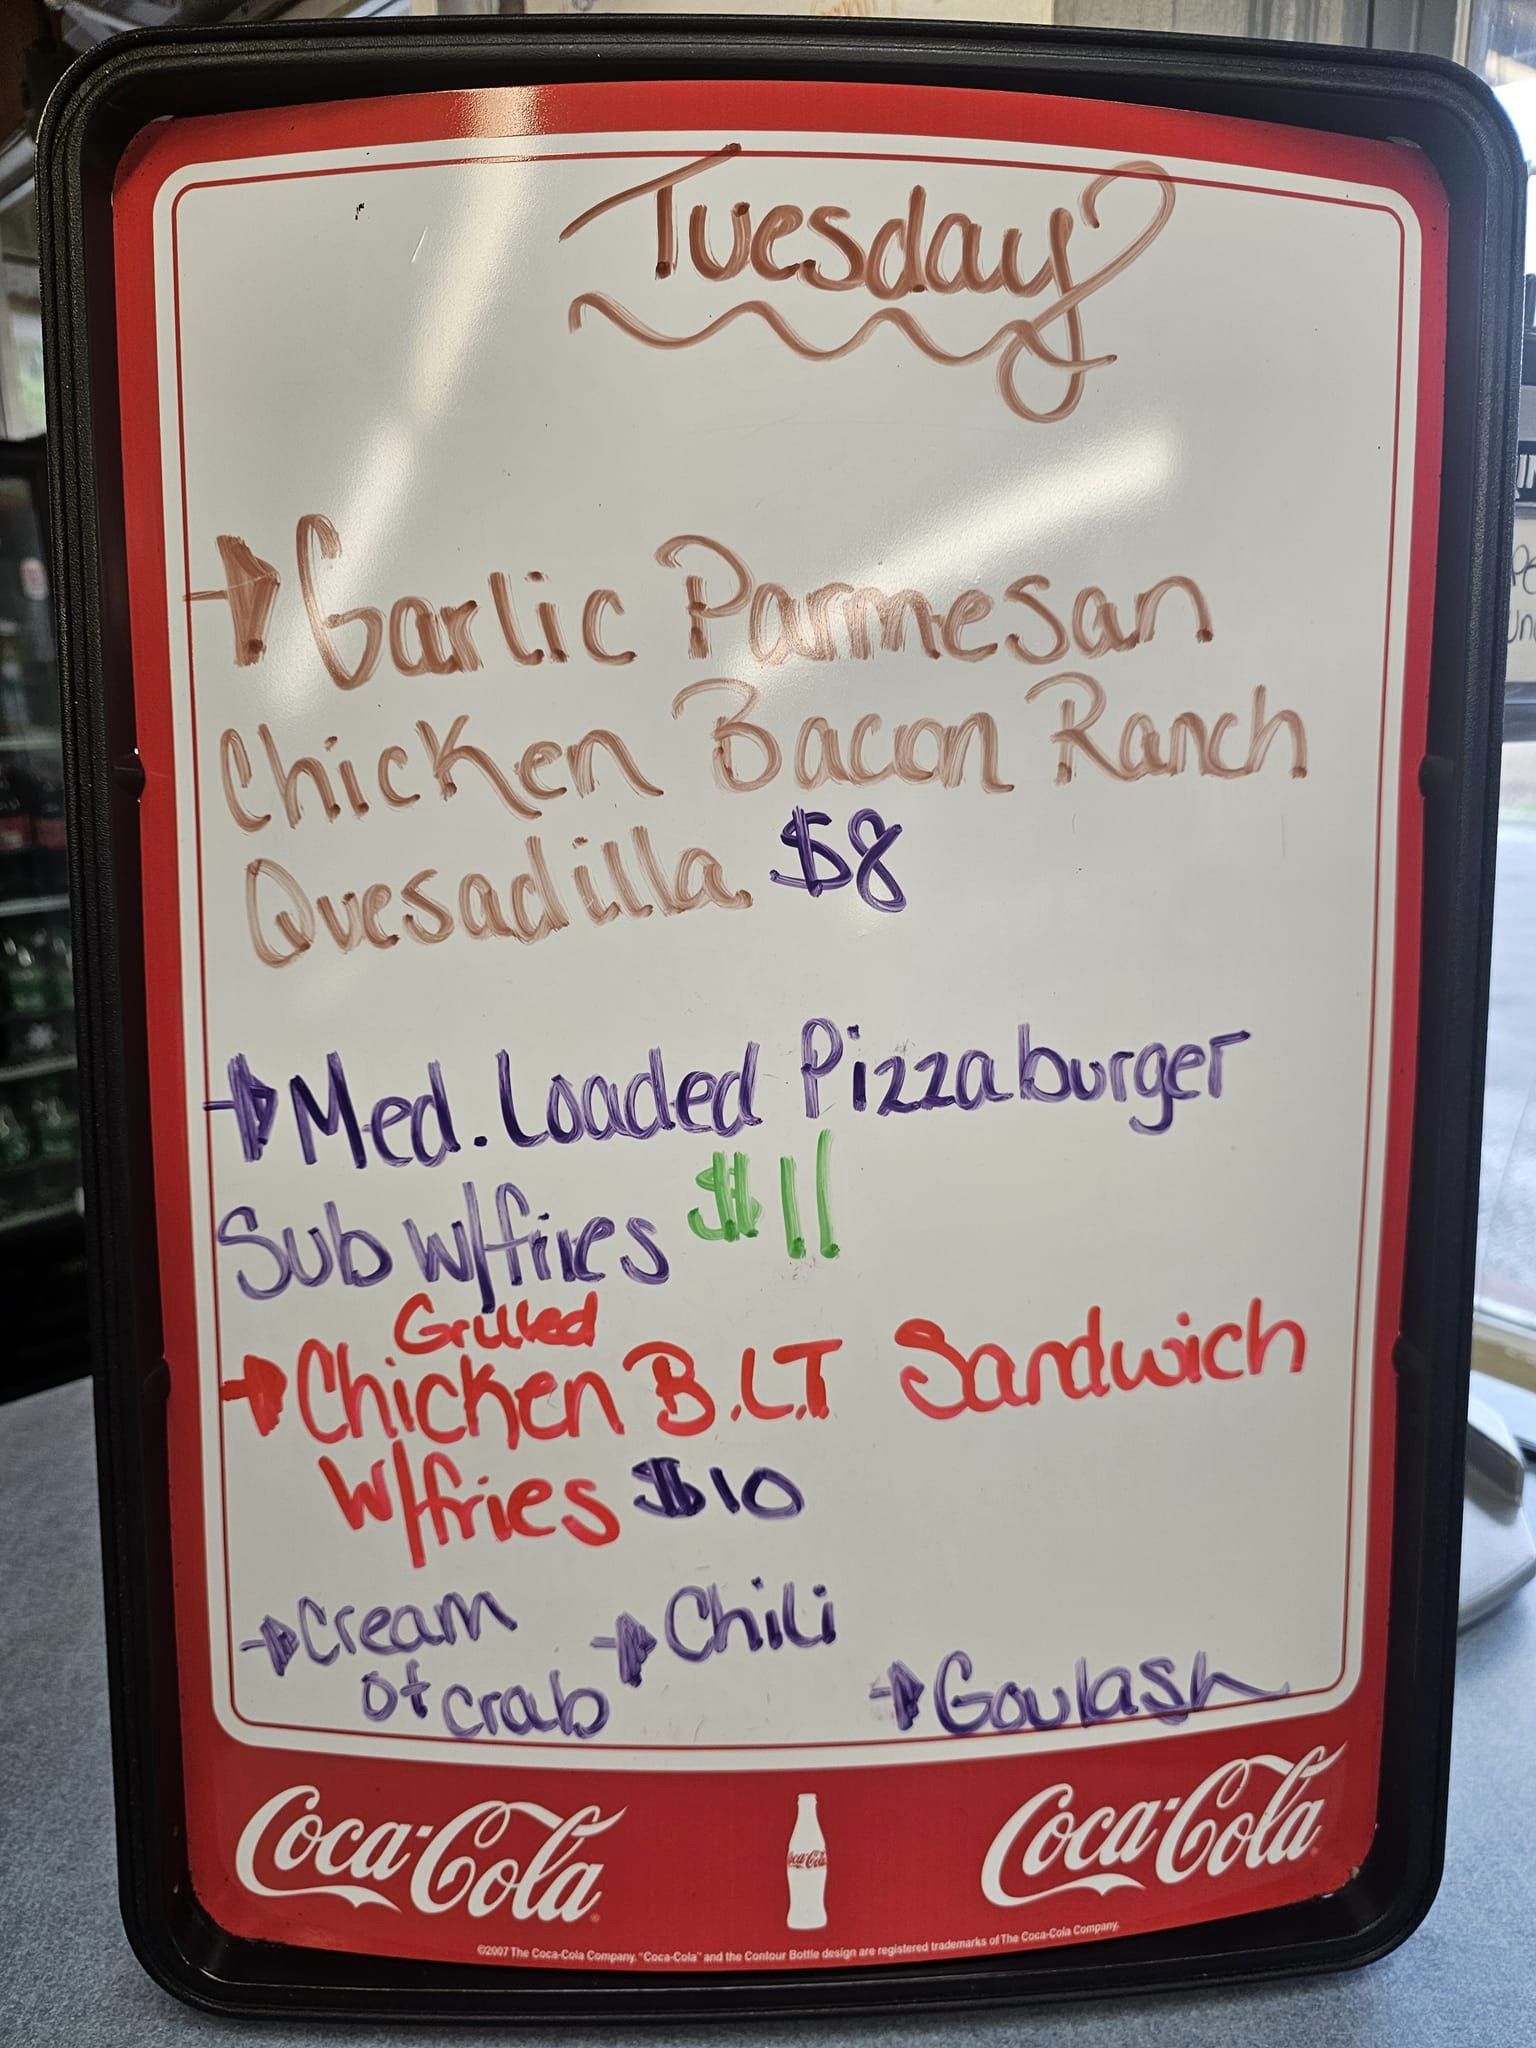 Tuesday
Garlic Parmesan
Chicken Bacon Ranch
Quesadilla $8
Med. Loaded Pizzaburger
Sub w/fries $11
Grilled
Chicken B.L.T Sandwich
W/fries $10
Cream
of crab
Chili
Goulash
Coca-Cola
Coca-Cola
Coca-Cola
©2007 The Coca-Cola Company. "Coca-Cola" and the Contour Bottle design are registered trademarks of The Coca-Cola Company.